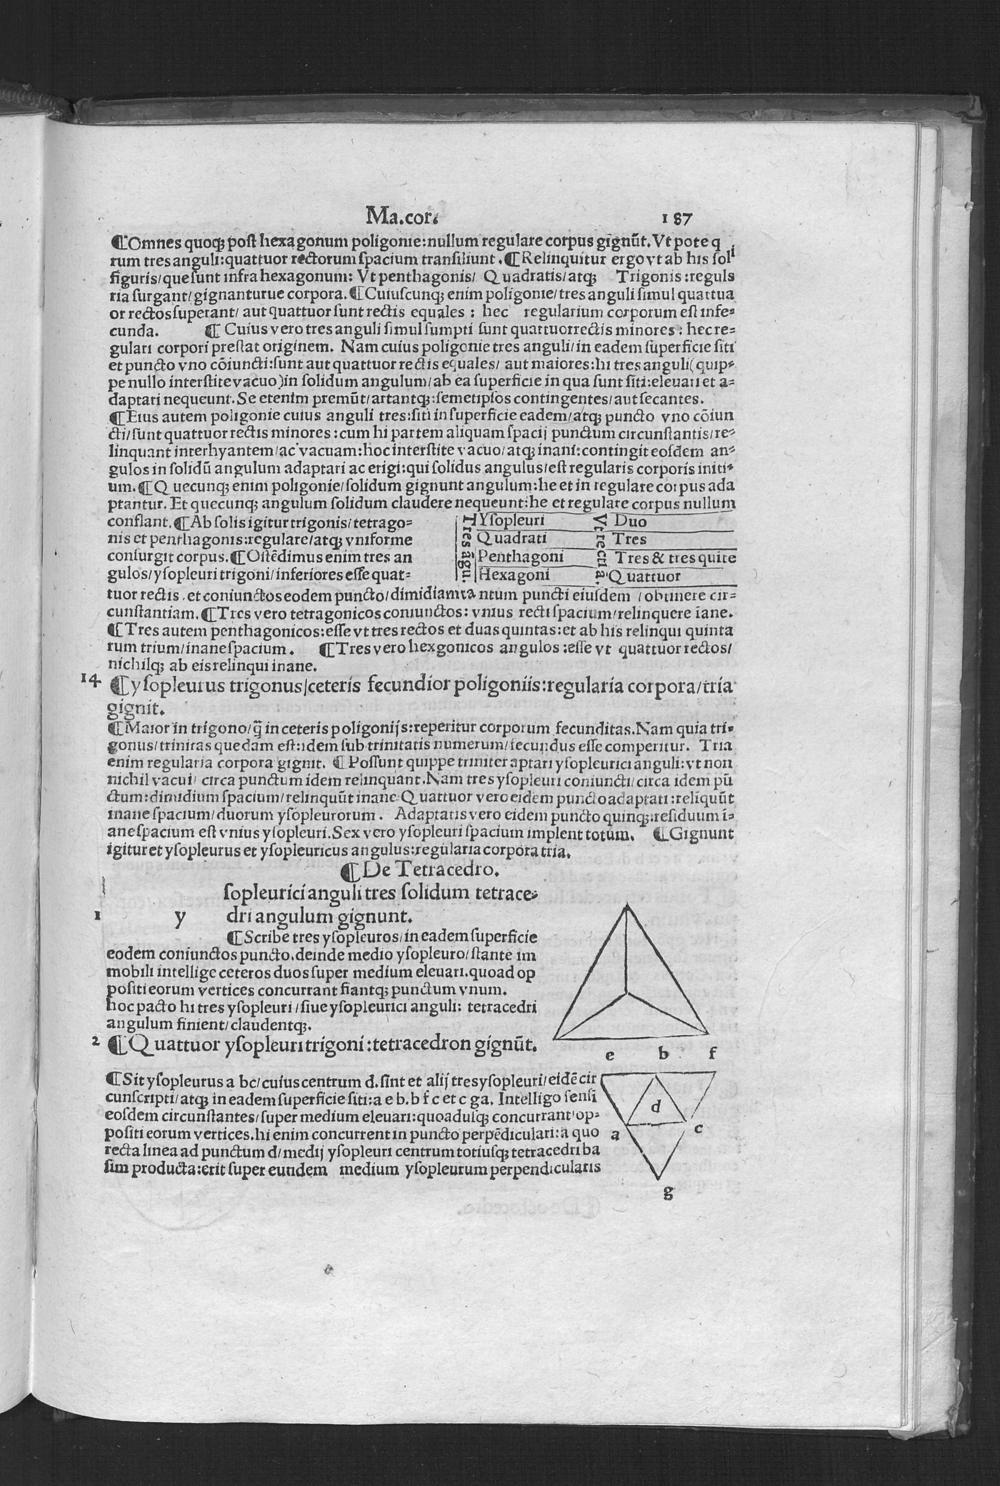 Ma.cor.
187
¶Omnes quoqꝫ post hexagonum poligonie:nullum regulare corpus gignūt.Vt pote q
rum tres anguli:quattuor rectorum spacium transiliunt.¶Relinquitur ergo vt ab his soli
figuris/que sunt infra hexagonum: Vt penthagonis/ Quadratis/atqꝫ Trigonis:reguls
ria surgant/gignanturue corpora.¶Cuiuscunqꝫ enim poligonie/tres anguli simul quattua
or rectos superant/ aut quattuor sunt rectis equales : hec regularium corporum est infe=
cunda. ¶Cuius vero tres anguli simul sumpti sunt quattuorrectis minores : hec re=
gulari corpori prestat originem. Nam cuius poligonie tres anguli/in eadem superficie siti
et puncto vno cōiuncti:sunt aut quattuor rectis equales/ aut maiores:hi tres anguli(quip=
pe nullo interstite vacuo)in solidum angulum/ab ea superficie in qua sunt siti:eleuari et a=
daptari nequeunt.Se etenim premūt/artantqꝫ:semetipsos contingentes/aut secantes.
¶Eius autem poligonie cuius anguli tres:siti in superficie eadem/atqꝫ puncto vno cōiun
cti/sunt quattuor rectis minores:cum hi partem aliquam spacij punctum circunstantis/re=
linquant interhyantem/ac vacuam:hoc interstite vacuo/atqꝫ inani:contingit eosdem an=
gulos in solidū angulum adaptari ac erigi:qui solidus angulus/est regularis corporis initi=
um.¶Quecunqꝫ enim poligonie/solidum gignunt angulum:he et in regulare corpus ada
ptantur. Et quecunqꝫ angulum solidum claudere nequeunt:he et regulare corpus nullum
conflant.¶Ab solis igitur trigonis/tetrago=
nis et penthagonis:regulare/atqꝫ vniforme
consurgit corpus.¶Ostēdimus enim tres an
gulos/ysopleuri trigoni/inferiores esse quat=
Tres āgu.
Ysopleuri
Quadrati
Penthagoni
Hexagoni
Vt recti a.
Duo
Tres
Tres & tres quite
Quattuor
tuor rectis . et coniunctos eodem puncto/dimidiam tantum puncti eiusdem / obtinere cir=
cunstantiam.¶Tres vero tetragonicos coniunctos: vnius recti spacium/relinquere īane.
¶Tres autem penthagonicos:esse vt tres rectos et duas quintas:et ab his relinqui quinta
rum trium/inane spacium. ¶Tres vero hexgonicos angulos:esse vt quattuor rectos/
nichilqꝫ ab eis relinqui inane.
14 ¶Ysopleurus trigonus/ceteris fecundior poligoniis:regularia corpora/tria
gignit.
¶Maior in trigono/q̄ in ceteris poligonijs:reperitur corporum fecunditas.Nam quia tri=
gonus/trinitas quedam est:idem sub trinitatis numerum/fecundus esse comperitur. Tria
enim regularia corpora gignit. ¶Possunt quippe triniter aptari ysopleurici anguli:vt non
nichil vacui/ circa punctum idem relinquant.Nam tres ysopleuri coniuncti/circa idem pū
ctum:dimidium spacium/relinquūt inane Quattuor vero eidem puncto adaptati:reliquūt
inane spacium/duorum ysopleurorum. Adaptatis vero eidem puncto quinqꝫ:residuum ī=
ane spacium est vnius ysopleuri.Sex vero ysopleuri spacium implent totum. ¶Gignunt
igitur et ysopleurus et ysopleuricus angulus:regularia corpora tria.
¶De Tetracedro.
1 y sopleurici anguli tres solidum tetrace=
dri angulum gignunt.
¶Scribe tres ysopleuros/in eadem superficie
eodem coniunctos puncto.deinde medio ysopleuro/stante im
mobili intellige ceteros duos super medium eleuari.quoad op
positi eorum vertices concurrant fiantqꝫ punctum vnum.
hoc pacto hi tres ysopleuri/siue ysopleurici anguli: tetracedri
angulum finient/claudentqꝫ.
2 ¶Quattuor ysopleuri trigoni:tetracedron gignūt.
¶Sit ysopleurus a bc/cuius centrum d.sint et alij tres ysopleuri/eidē cir
cunscripti/atqꝫ in eadem superficie siti:a e b.b f c et c ga. Intelligo sensi
eosdem circunstantes/super medium eleuari:quoadusqꝫ concurrant op=
positi eorum vertices.hi enim concurrent in puncto perpēdiculari:a quo
recta linea ad punctum d/medij ysopleuri centrum totiusqꝫ tetracedri ba
sim producta:erit super eundem medium ysopleurum perpendicularis
e b f
d
a c
g